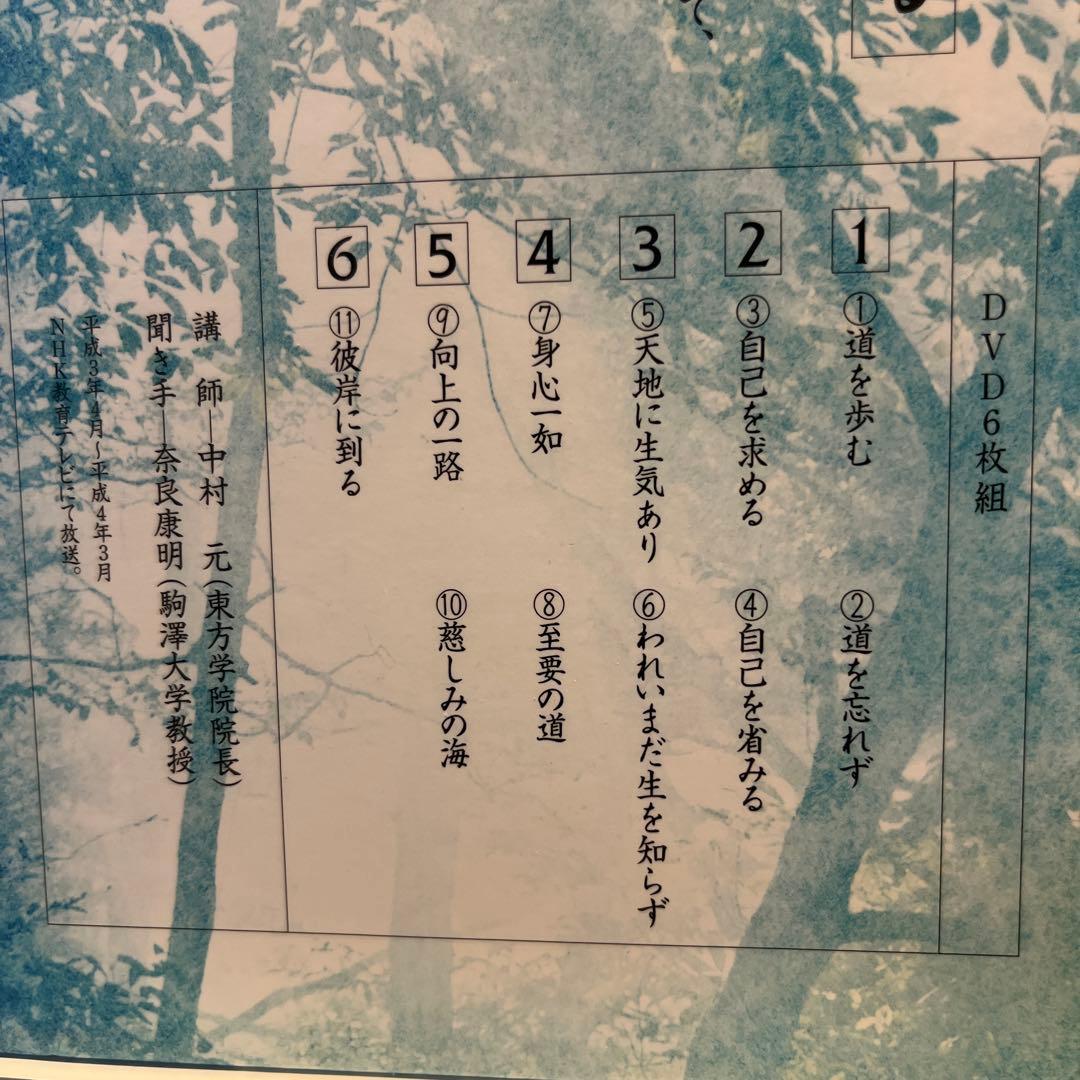 て、
DVD6枚組
1 ①道を歩む ②道を忘れず
2 ③自己を求める ④自己を省みる
3 ⑤天地に生気あり ⑥われいまだ生を知らず
4 ⑦身心一如 ⑧至要の道
5 ⑨向上の一路 ⑩慈しみの海
6 ⑪彼岸に到る
講 師―中村 元(東方学院院長)
聞き手―奈良康明(駒澤大学教授)
平成3年4月~平成4年3月
NHK教育テレビにて放送。